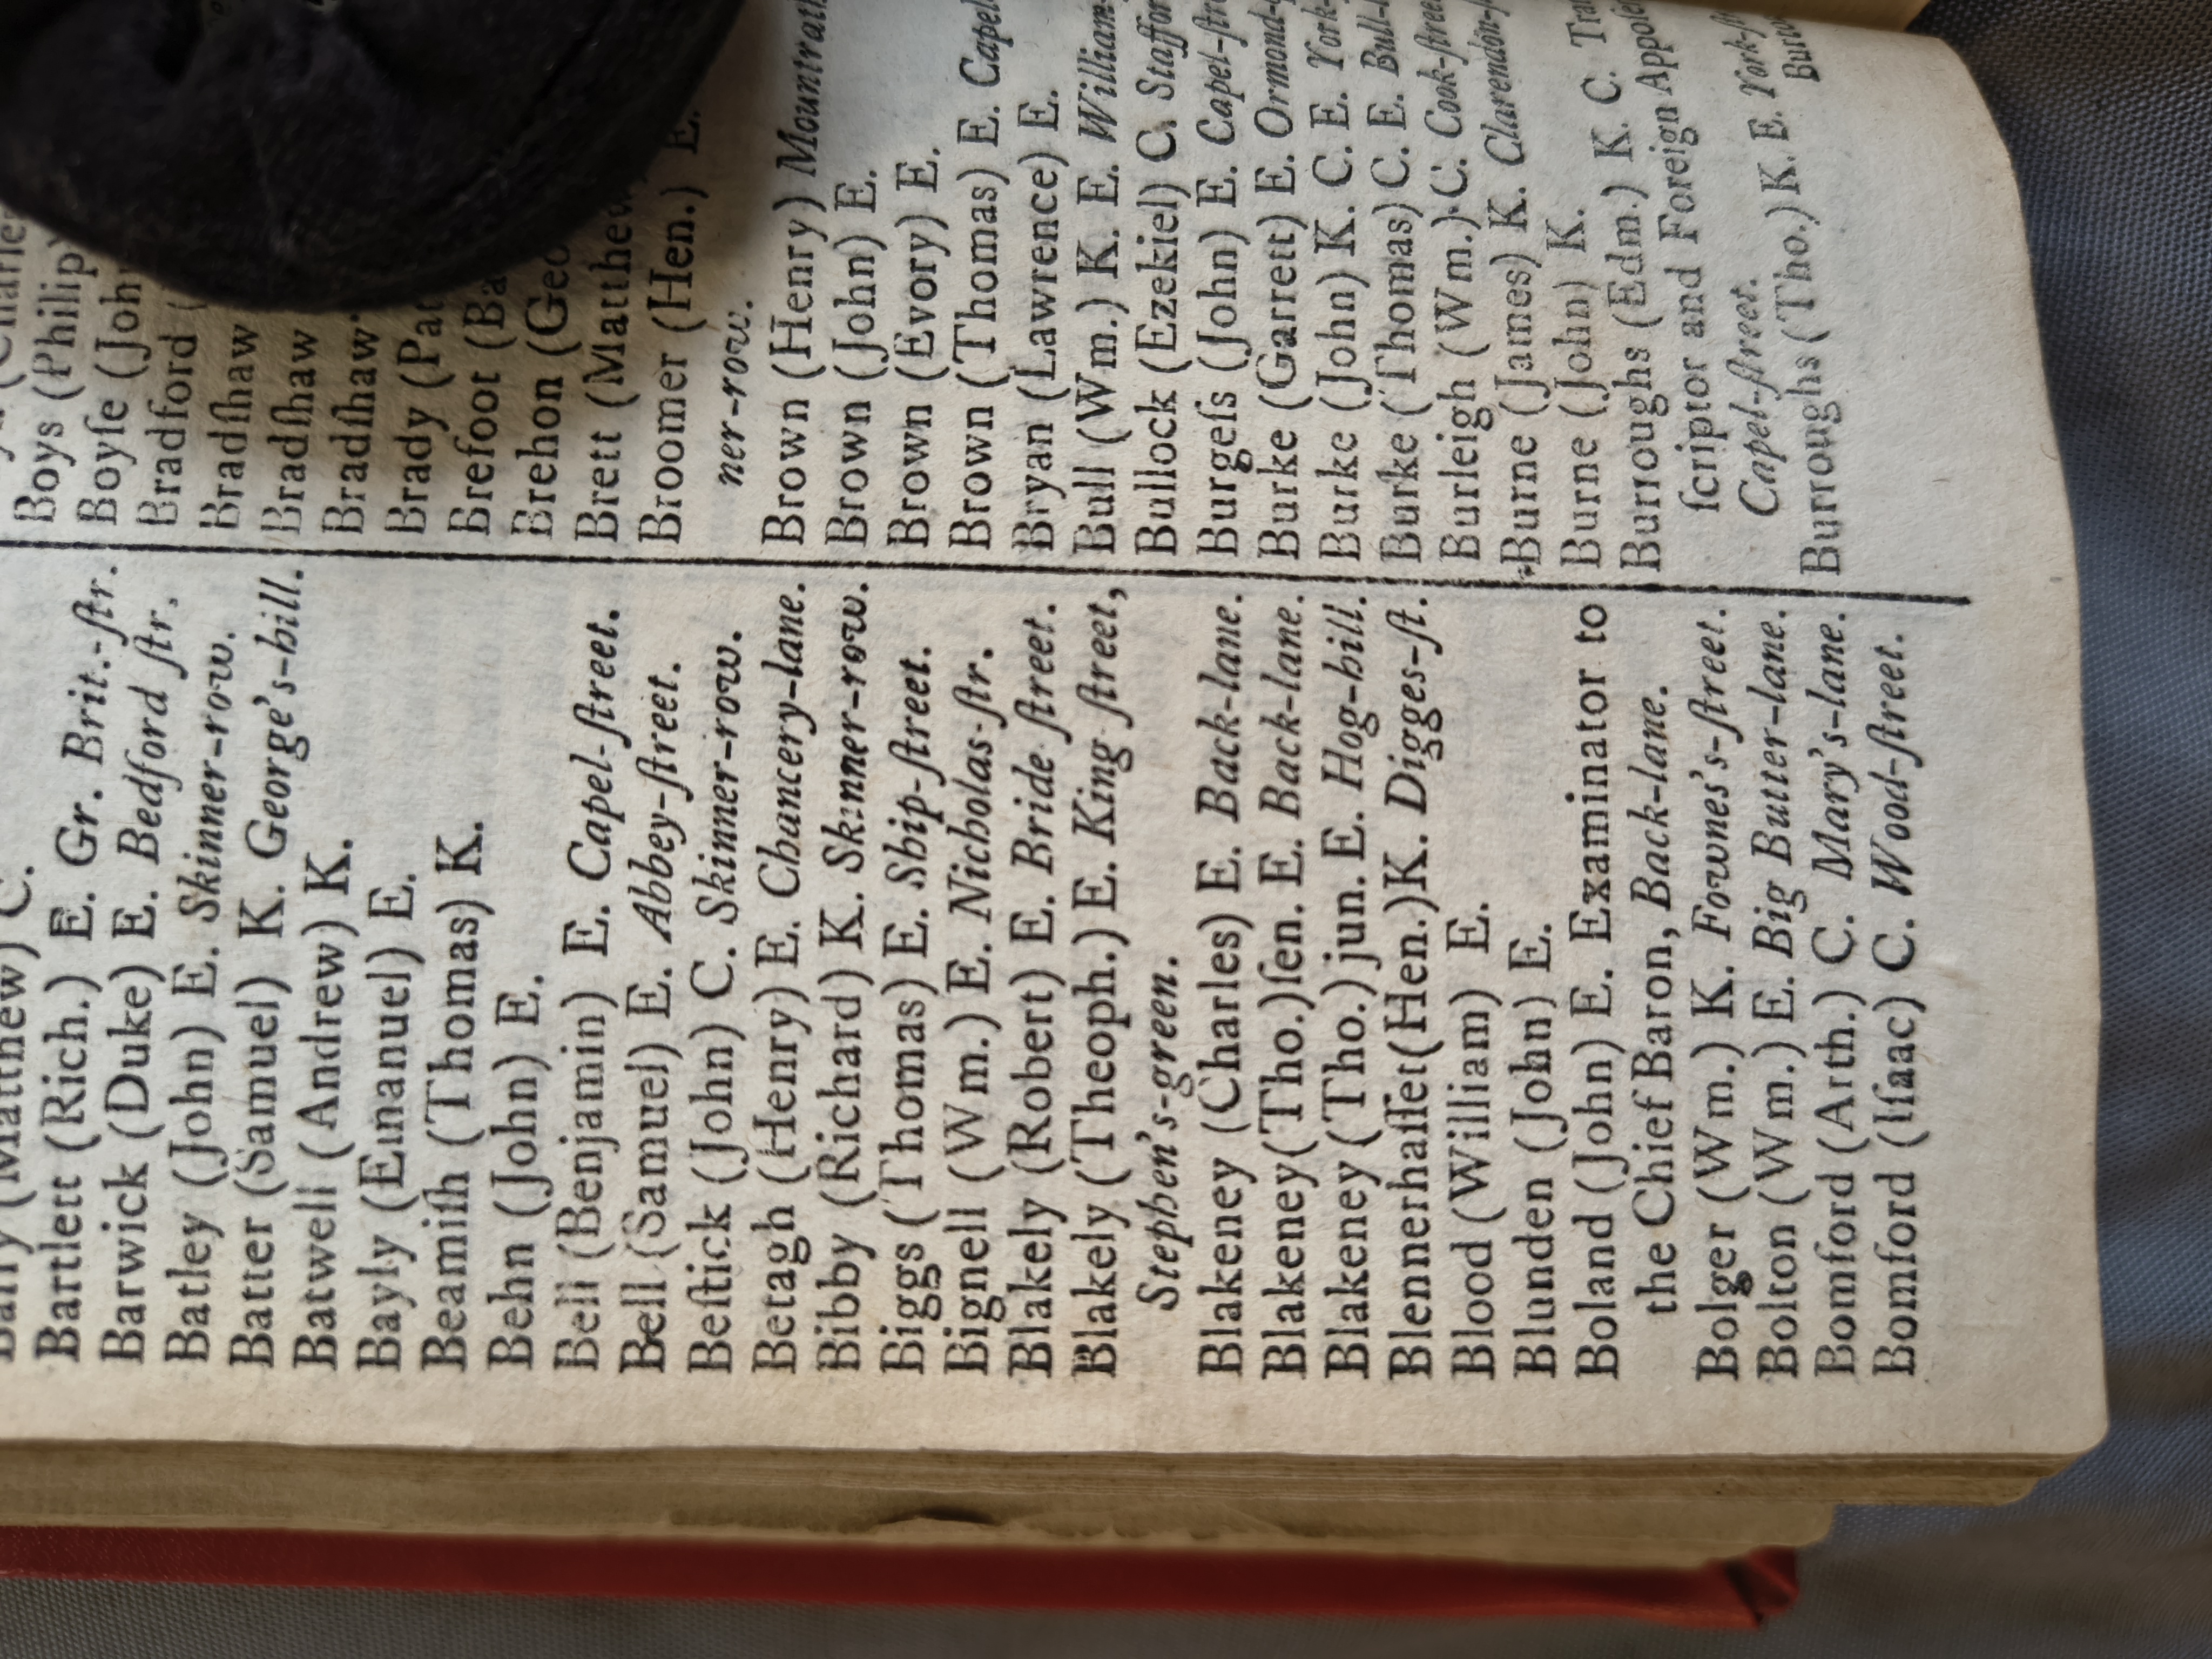 (Matthew) C.
Bartlett (Rich.) E. Gr. Brit.-ſtr.
Barwick (Duke) E. Bedford ſtr.
Batley (John) E. Skinner-row.
Batter (Samuel) K. George's-hill.
Batwell (Andrew) K.
Bayly (Emanuel) E.
Beamiſh (Thomas) K.
Behn (John) E.
Bell (Benjamin) E. Capel-ſtreet.
Bell (Samuel) E. Abbey-ſtreet.
Beſtick (John) C. Skinner-row.
Betagh (Henry) E. Chancery-lane.
Bibby (Richard) K. Skinner-row.
Biggs (Thomas) E. Ship-ſtreet.
Bignell (Wm.) E. Nicholas-ſtr.
Blakely (Robert) E. Bride ſtreet.
Blakely (Theoph.) E. King ſtreet,
Stephen's-green.
Blakeney (Charles) E. Back-lane.
Blakeney (Tho.) ſen. E. Back-lane.
Blakeney (Tho.) jun. E. Hog-hill.
Blennerhaſſet (Hen.) K. Digges-ſt.
Blood (William) E.
Blunden (John) E.
Boland (John) E. Examinator to
the Chief Baron, Back-lane.
Bolger (Wm.) K. Fownes's-ſtreet.
Bolton (Wm.) E. Big Butter-lane.
Bomford (Arth.) C. Mary's-lane.
Bomford (Iſaac) C. Wood-ſtreet.
Boys (Philip)
Boyſe (John
Bradford (
Bradſhaw
Bradſhaw
Bradſhaw
Brady (Pat
Brefoot (Ba
Brehon (Geo
Brett (Matthew
Broomer (Hen.) E.
ner-row.
Brown (Henry) Mountrath
Brown (John) E.
Brown (Evory) E.
Brown (Thomas) E. Capel
Bryan (Lawrence) E.
Bull (Wm.) K. E. William-
Bullock (Ezekiel) C. Staffor
Burgeſs (John) E. Capel-ſtre
Burke (Garrett) E. Ormond-
Burke (John) K. C. E. York-
Burke (Thomas) C. E. Bull-
Burleigh (Wm.) C. Cook-ſtree
Burne (James) K. Clarendon-
Burne (John) K.
Burroughs (Edm.) K. C. Tra
ſcriptor and Foreign Appoſe
Capel-ſtreet.
Burroughs (Tho.) K. E. York-ſt
Burro